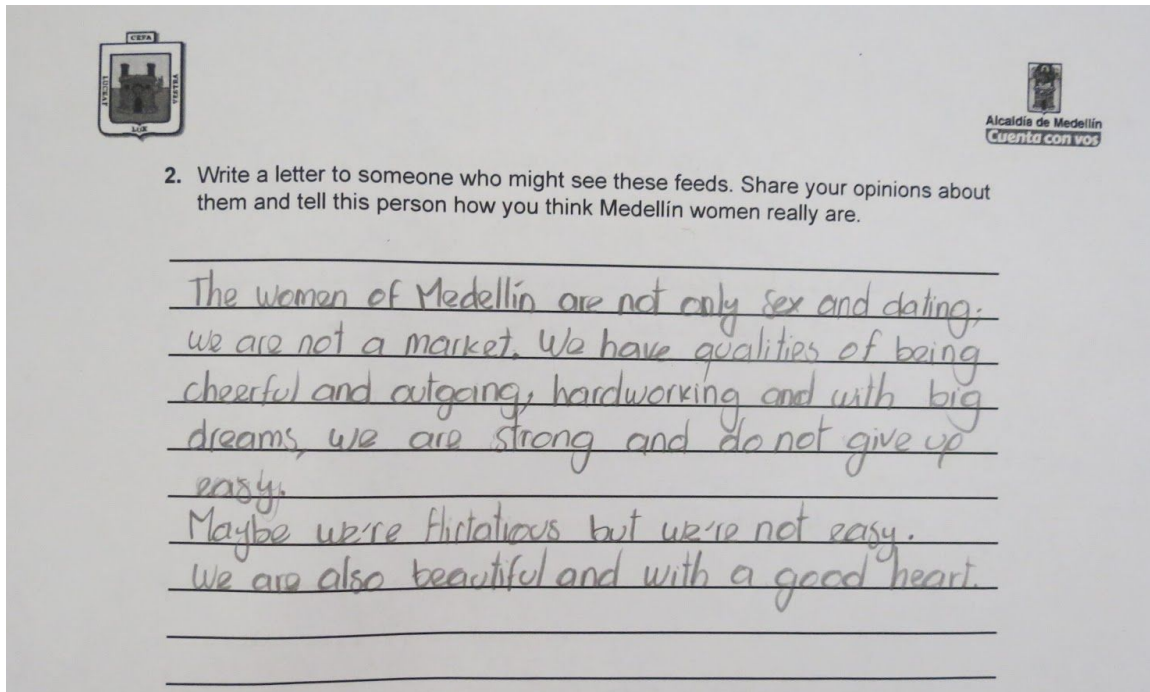 CEFA
LUCEAT
VESTRA
LUX
Alcaldía de Medellín
Cuenta con vos
2. Write a letter to someone who might see these feeds. Share your opinions about
them and tell this person how you think Medellín women really are.
The women of Medellín are not only sex and dating;
we are not a market. We have qualities of being
cheerful and outgoing, hardworking and with big
dreams, we are strong and do not give up
easy.
Maybe we're flirtatious but we're not easy.
We are also beautiful and with a good heart.